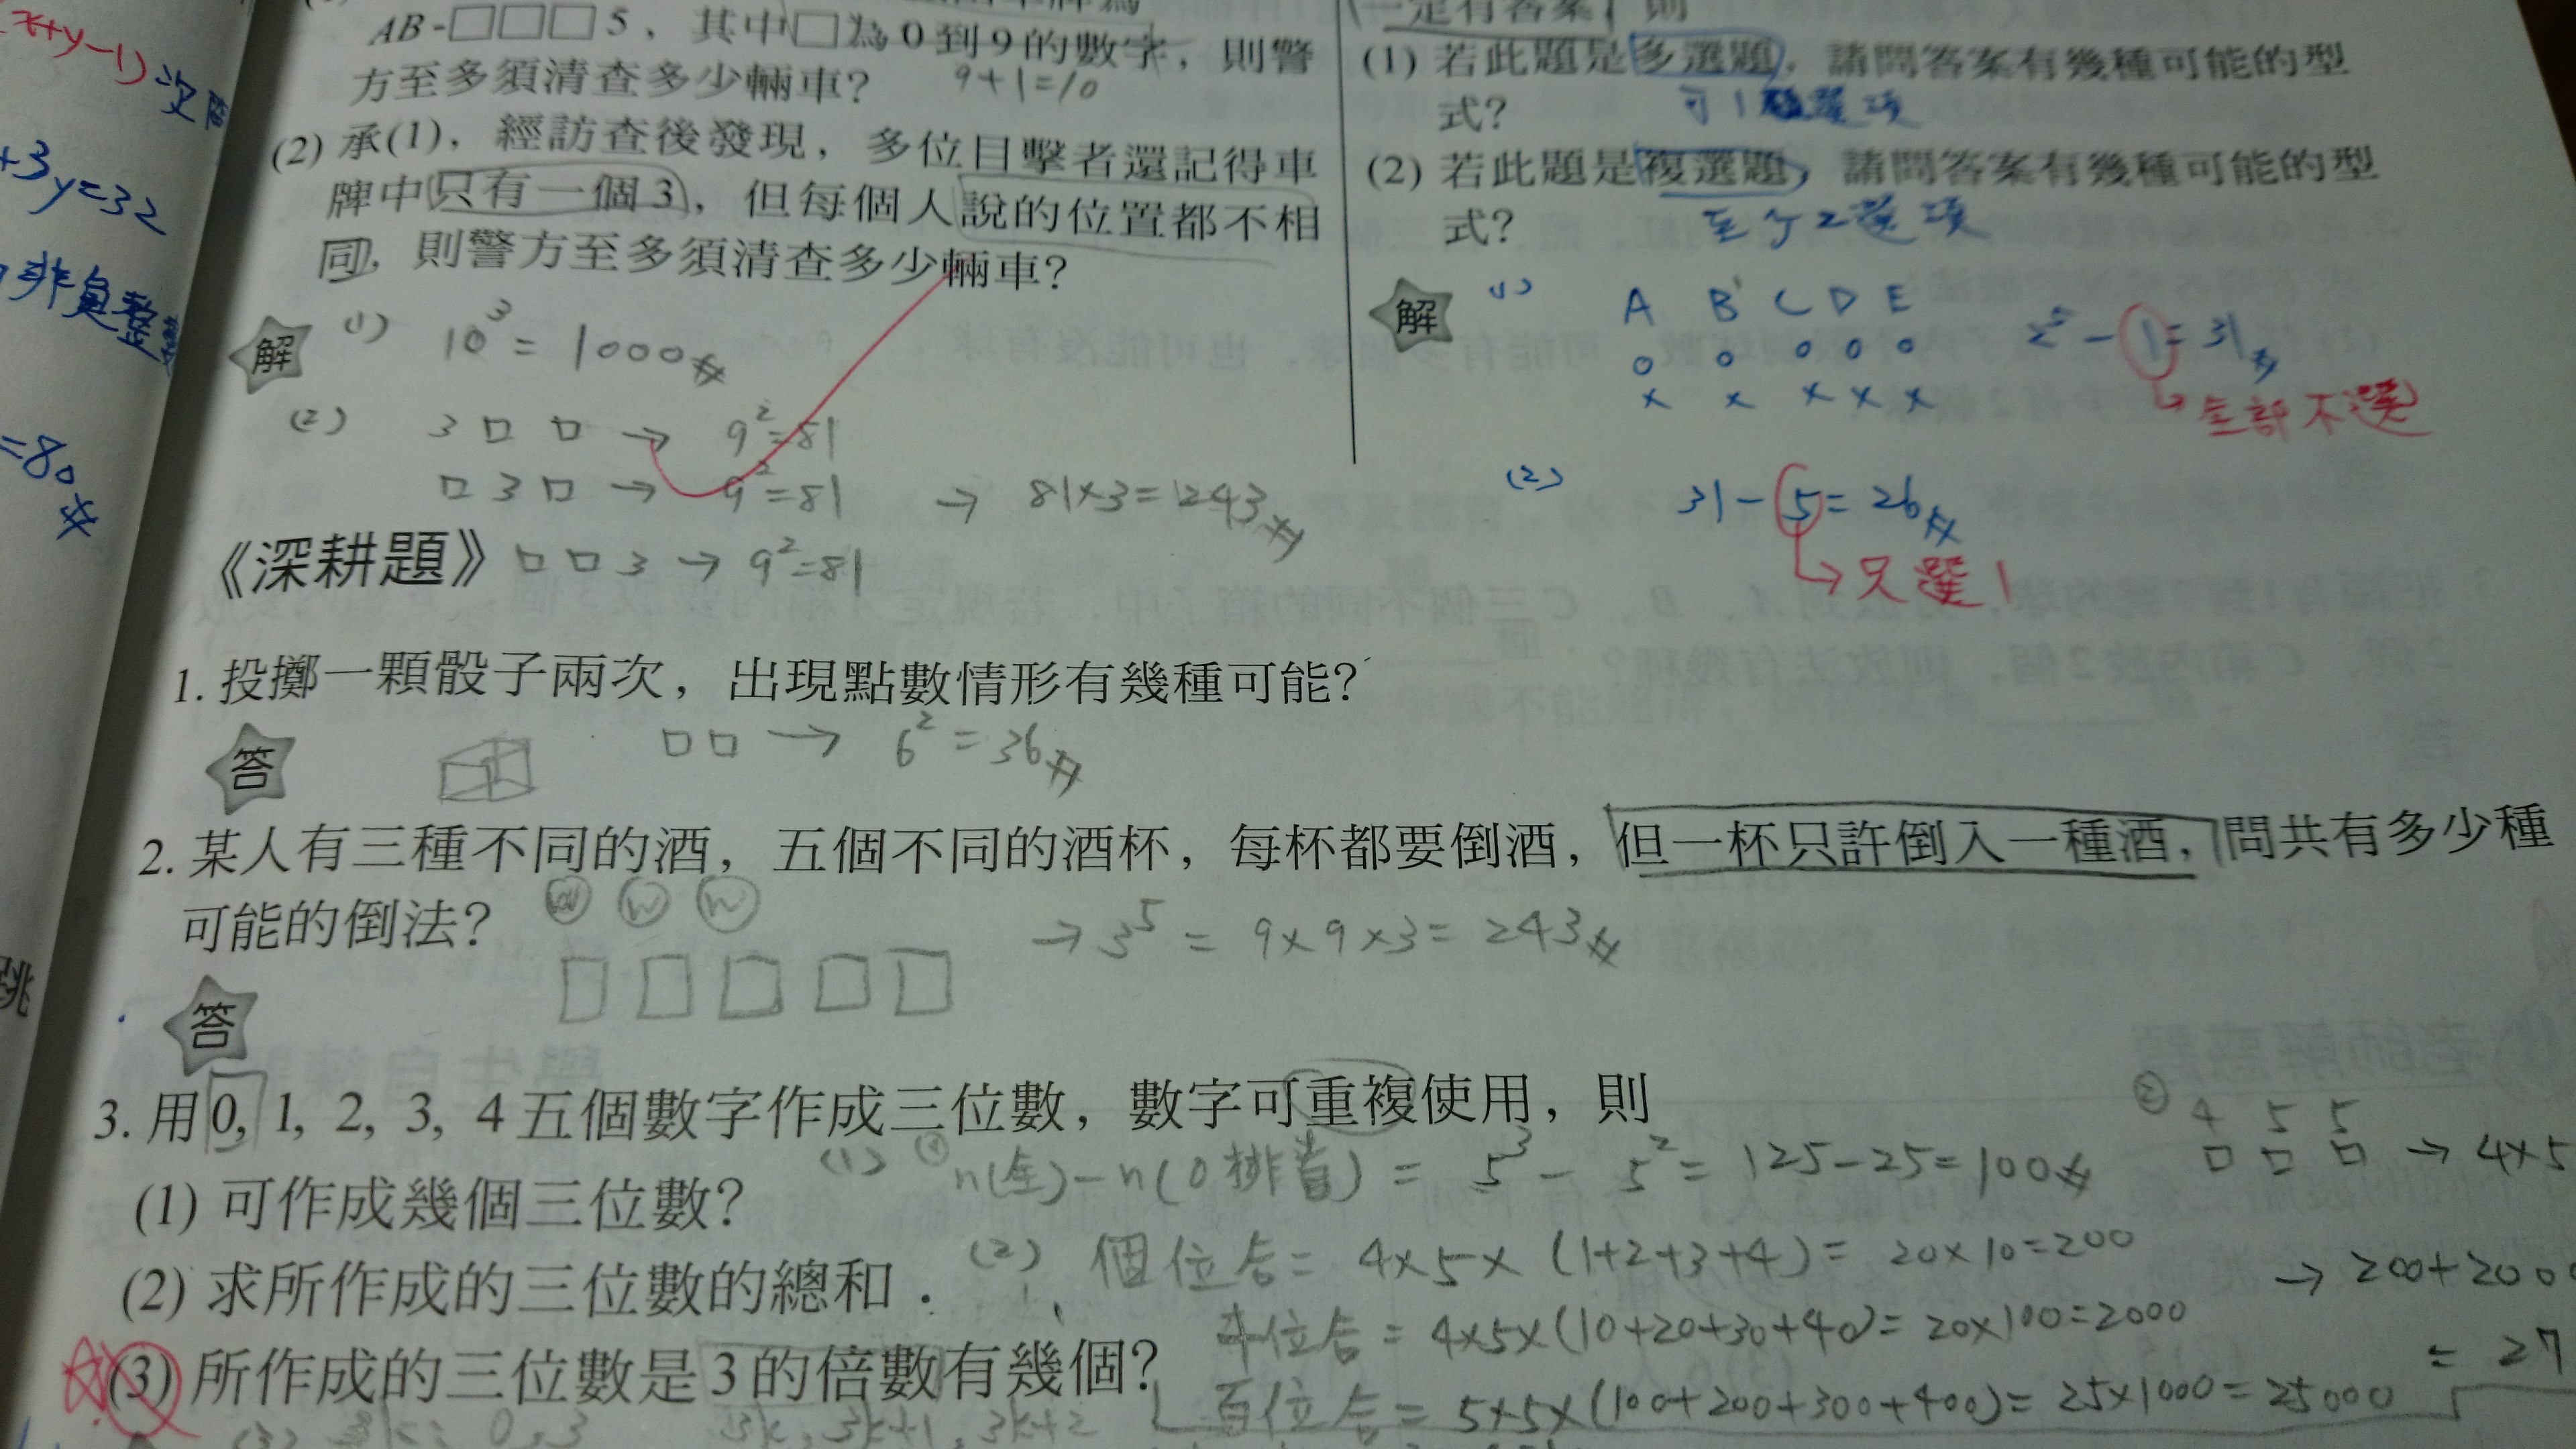 x+y-1)次
+3y=32
非負整
=80
跳
AB-□□□5，其中□為0到9的數字，則警
方至多須清查多少輛車？ 9+1=10
(2) 承(1)，經訪查後發現，多位目擊者還記得車
牌中只有一個3，但每個人說的位置都不相
同，則警方至多須清查多少輛車？
解 (1) 10³=1000
(2) 3□□→9²=81
□3□→9²=81 → 81×3=243
《深耕題》 □□3→9²=81
一定有答案」則
(1) 若此題是多選題，請問答案有幾種可能的型
式？ 可1選項
(2) 若此題是複選題，請問答案有幾種可能的型
式？ 至少2選項
解 (1) A B C D E
o o o o o 2⁵-1=31
x x x x x 全部不選
(2) 31-5=26
只選1
1. 投擲一顆骰子兩次，出現點數情形有幾種可能？
答 □□→6²=36
2. 某人有三種不同的酒，五個不同的酒杯，每杯都要倒酒，但一杯只許倒入一種酒，問共有多少種
可能的倒法？ W W W →3⁵=9×9×3=243
答 □□□□□
3. 用0, 1, 2, 3, 4五個數字作成三位數，數字可重複使用，則
(1) ① n(全)-n(0排首)=5³-5²=125-25=100
② 4 5 5
□□□→4×5
(1) 可作成幾個三位數？
(2) 個位合=4×5×(1+2+3+4)=20×10=200
(2) 求所作成的三位數的總和．
→200+2000
十位合=4×5×(10+20+30+40)=20×100=2000
=27
(3) 所作成的三位數是3的倍數有幾個？
百位合=5×5×(100+200+300+400)=25×1000=25000
(3) 3k: 0,3 3k, 3k+1, 3k+2